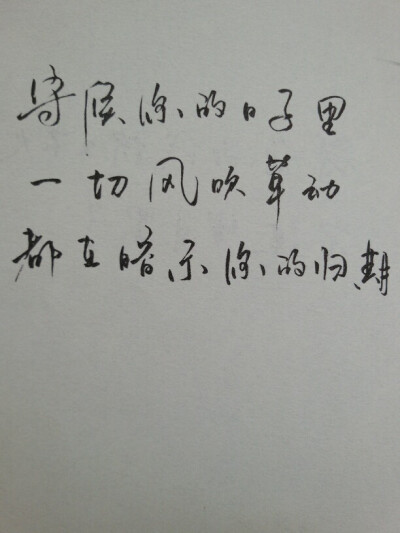 守候你的日子里
一切风吹草动
都在暗示你的归期